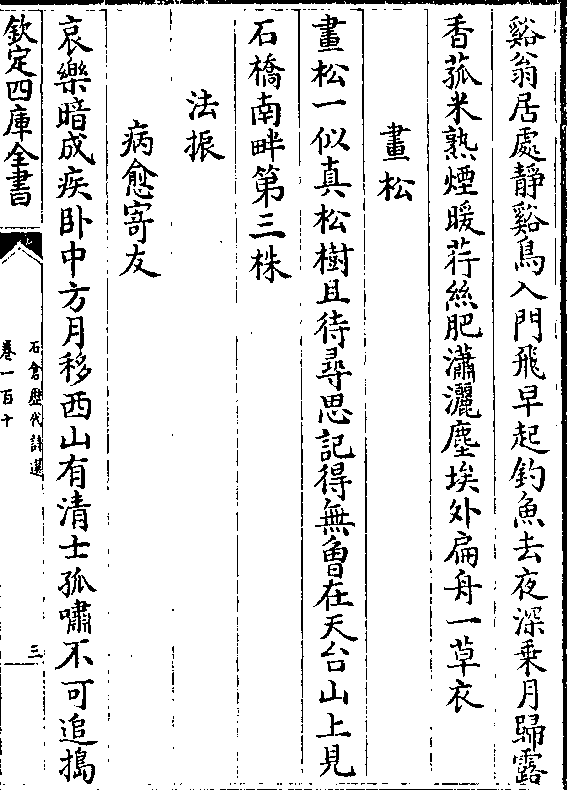 谿翁居處靜谿鳥入門飛早起釣魚去夜深乗月歸露
香菰米熟煙暖荇絲肥瀟灑塵埃外扁舟一草衣
畫松
畫松一似真松樹且待尋思記得無曾在天台山上見
石橋南畔第三株
法振
病愈寄友
哀樂暗成疾卧中方月移西山有清士孤嘯不可追搗
欽定四庫全書
石倉歷代詩選
卷一百十
三